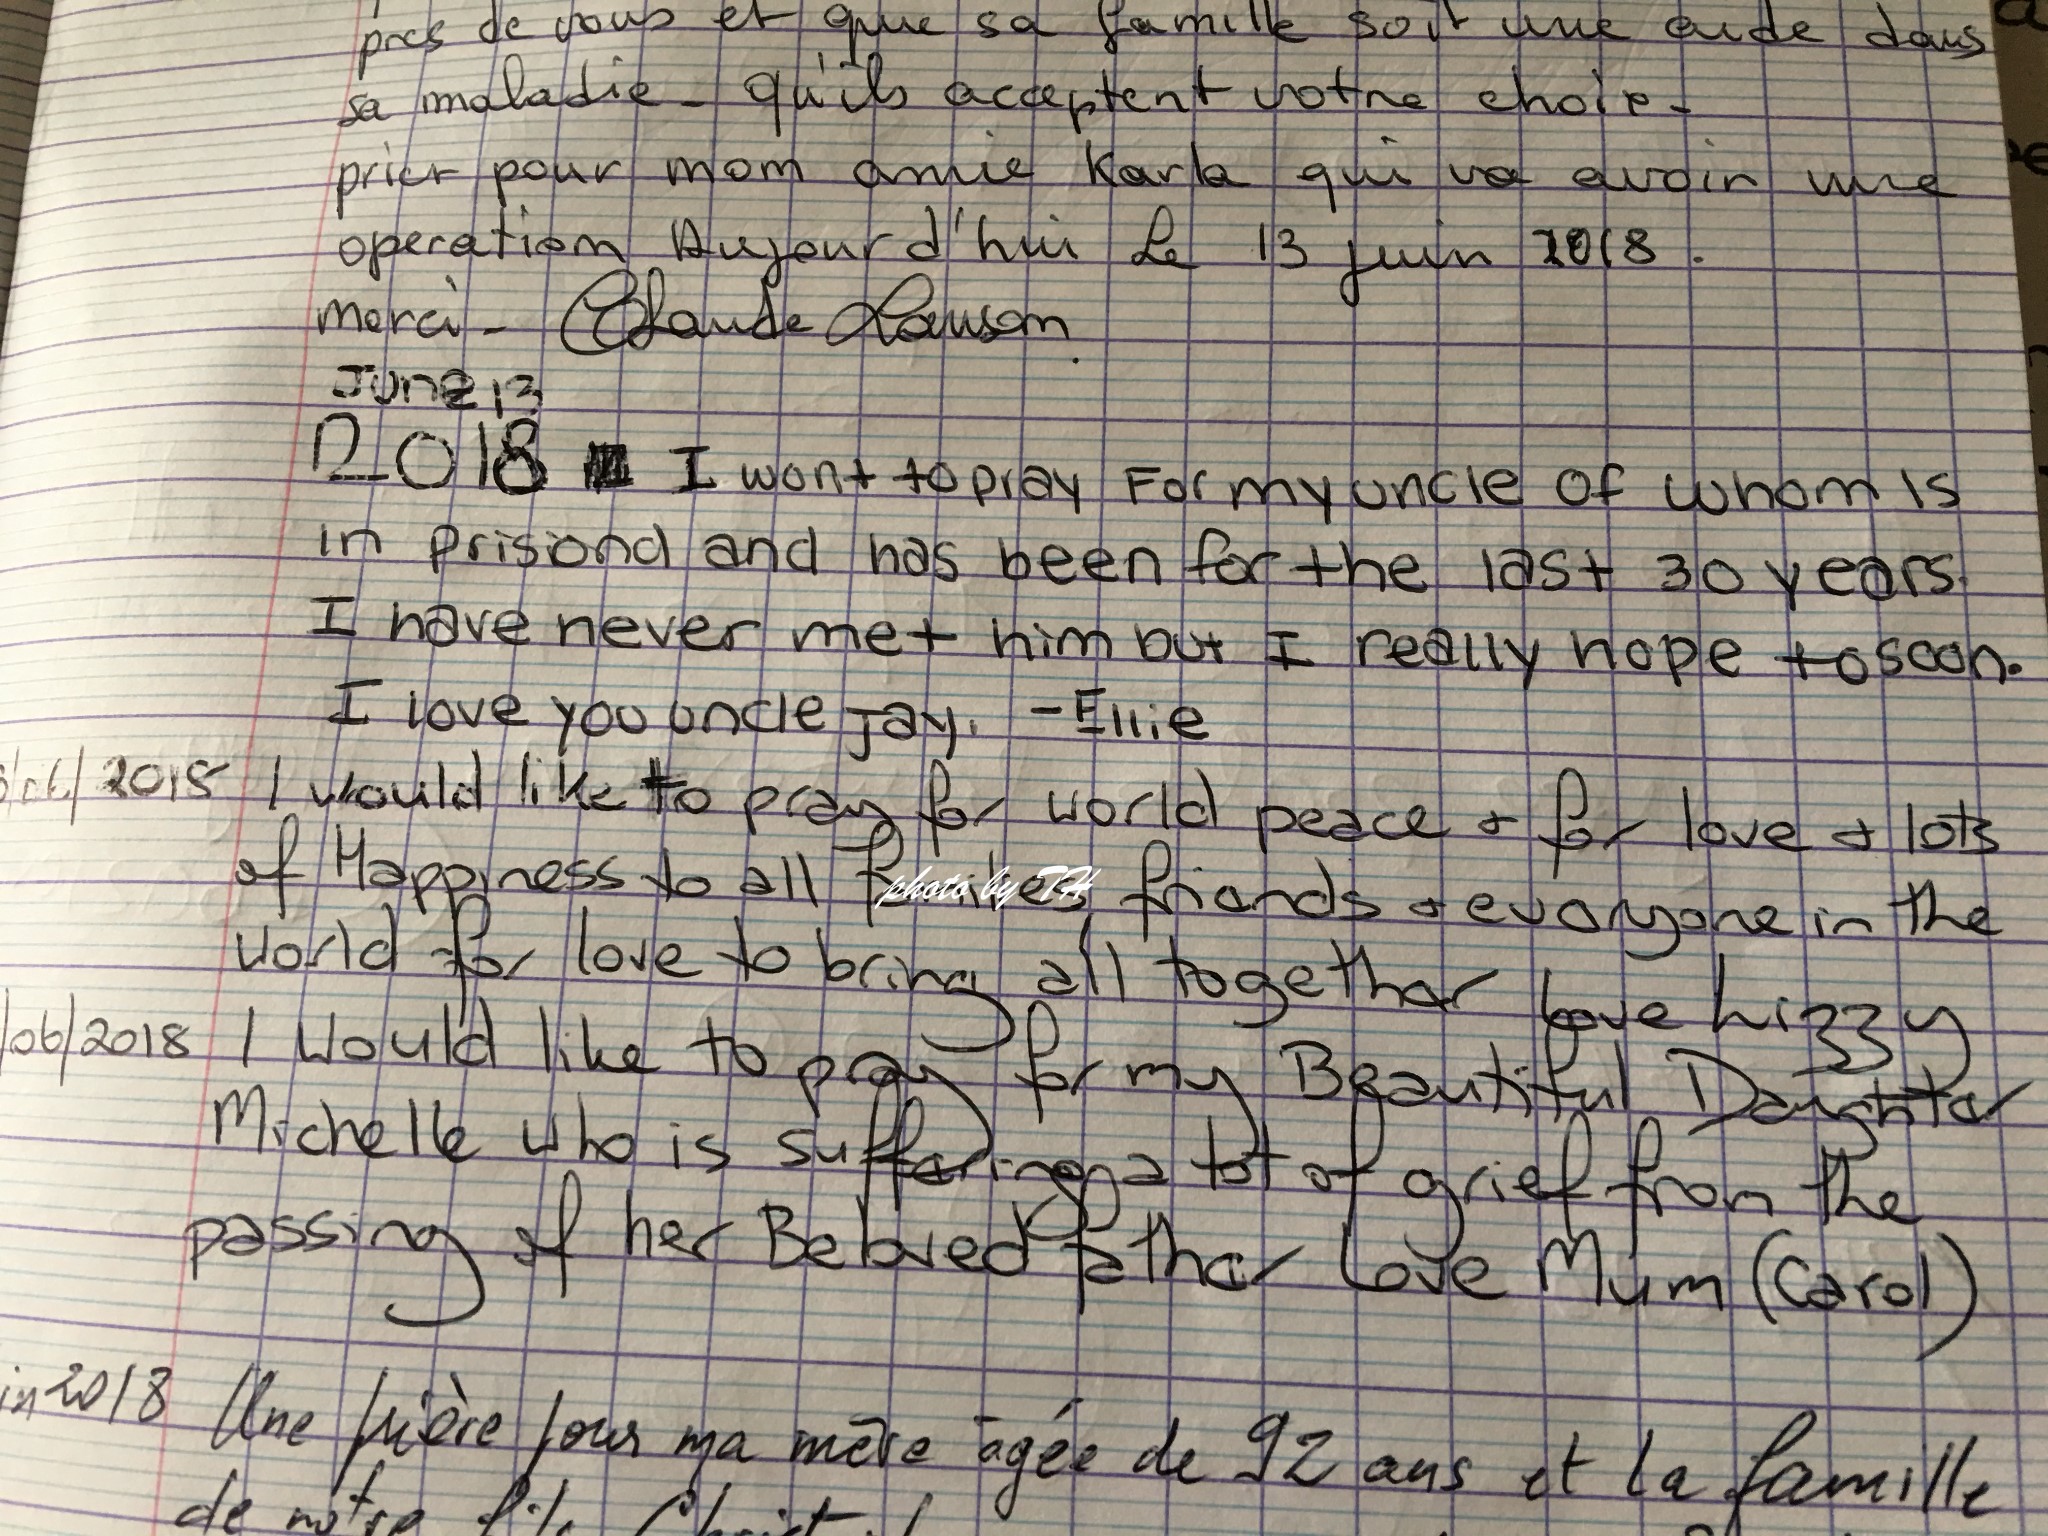 près de vous et que sa famille soit une aide dans
sa maladie - qu'ils acceptent votre choix -
prier pour mom amie Karla qui va avoir une
operation Aujourd'hui Le 13 juin 2018.
merci - Claude Lawson
June 13
2018 I want to pray For my uncle of whom is
in prisiond and has been for the last 30 years.
I have never met him but I really hope to soon.
I love you uncle Jay. - Ellie
/2018 I would like to pray for world peace + for love + lots
of Happiness to all families friends + everyone in the
world for love to bring all together love Lizzy
/06/2018 I would like to pray for my Beautiful Daughter
Michelle who is suffering a lot of grief from the
passing of her Beloved father Love Mum (Carol)
in 2018 Une prière pour ma mère agée de 92 ans et la famille
de notre
photo by TH